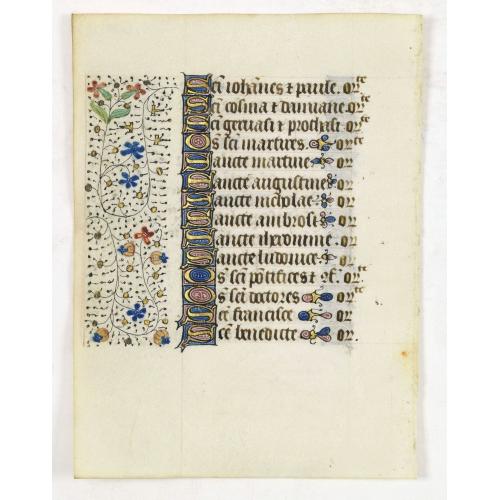 Sci iohannes t paule. orte
Sci cosma t damiane. orte
Sci geruasi t prothasi. orte
Os sci martires. orte
Sancte martine or
Sancte augustine or
Sancte nicholae or
Sancte ambrosi or
Sancte iheronime. or
Sancte ludouice or
Os sci pontifices t 9f. orte
Os sci doctores orte
Sce francisce or
Sce benedicte or.